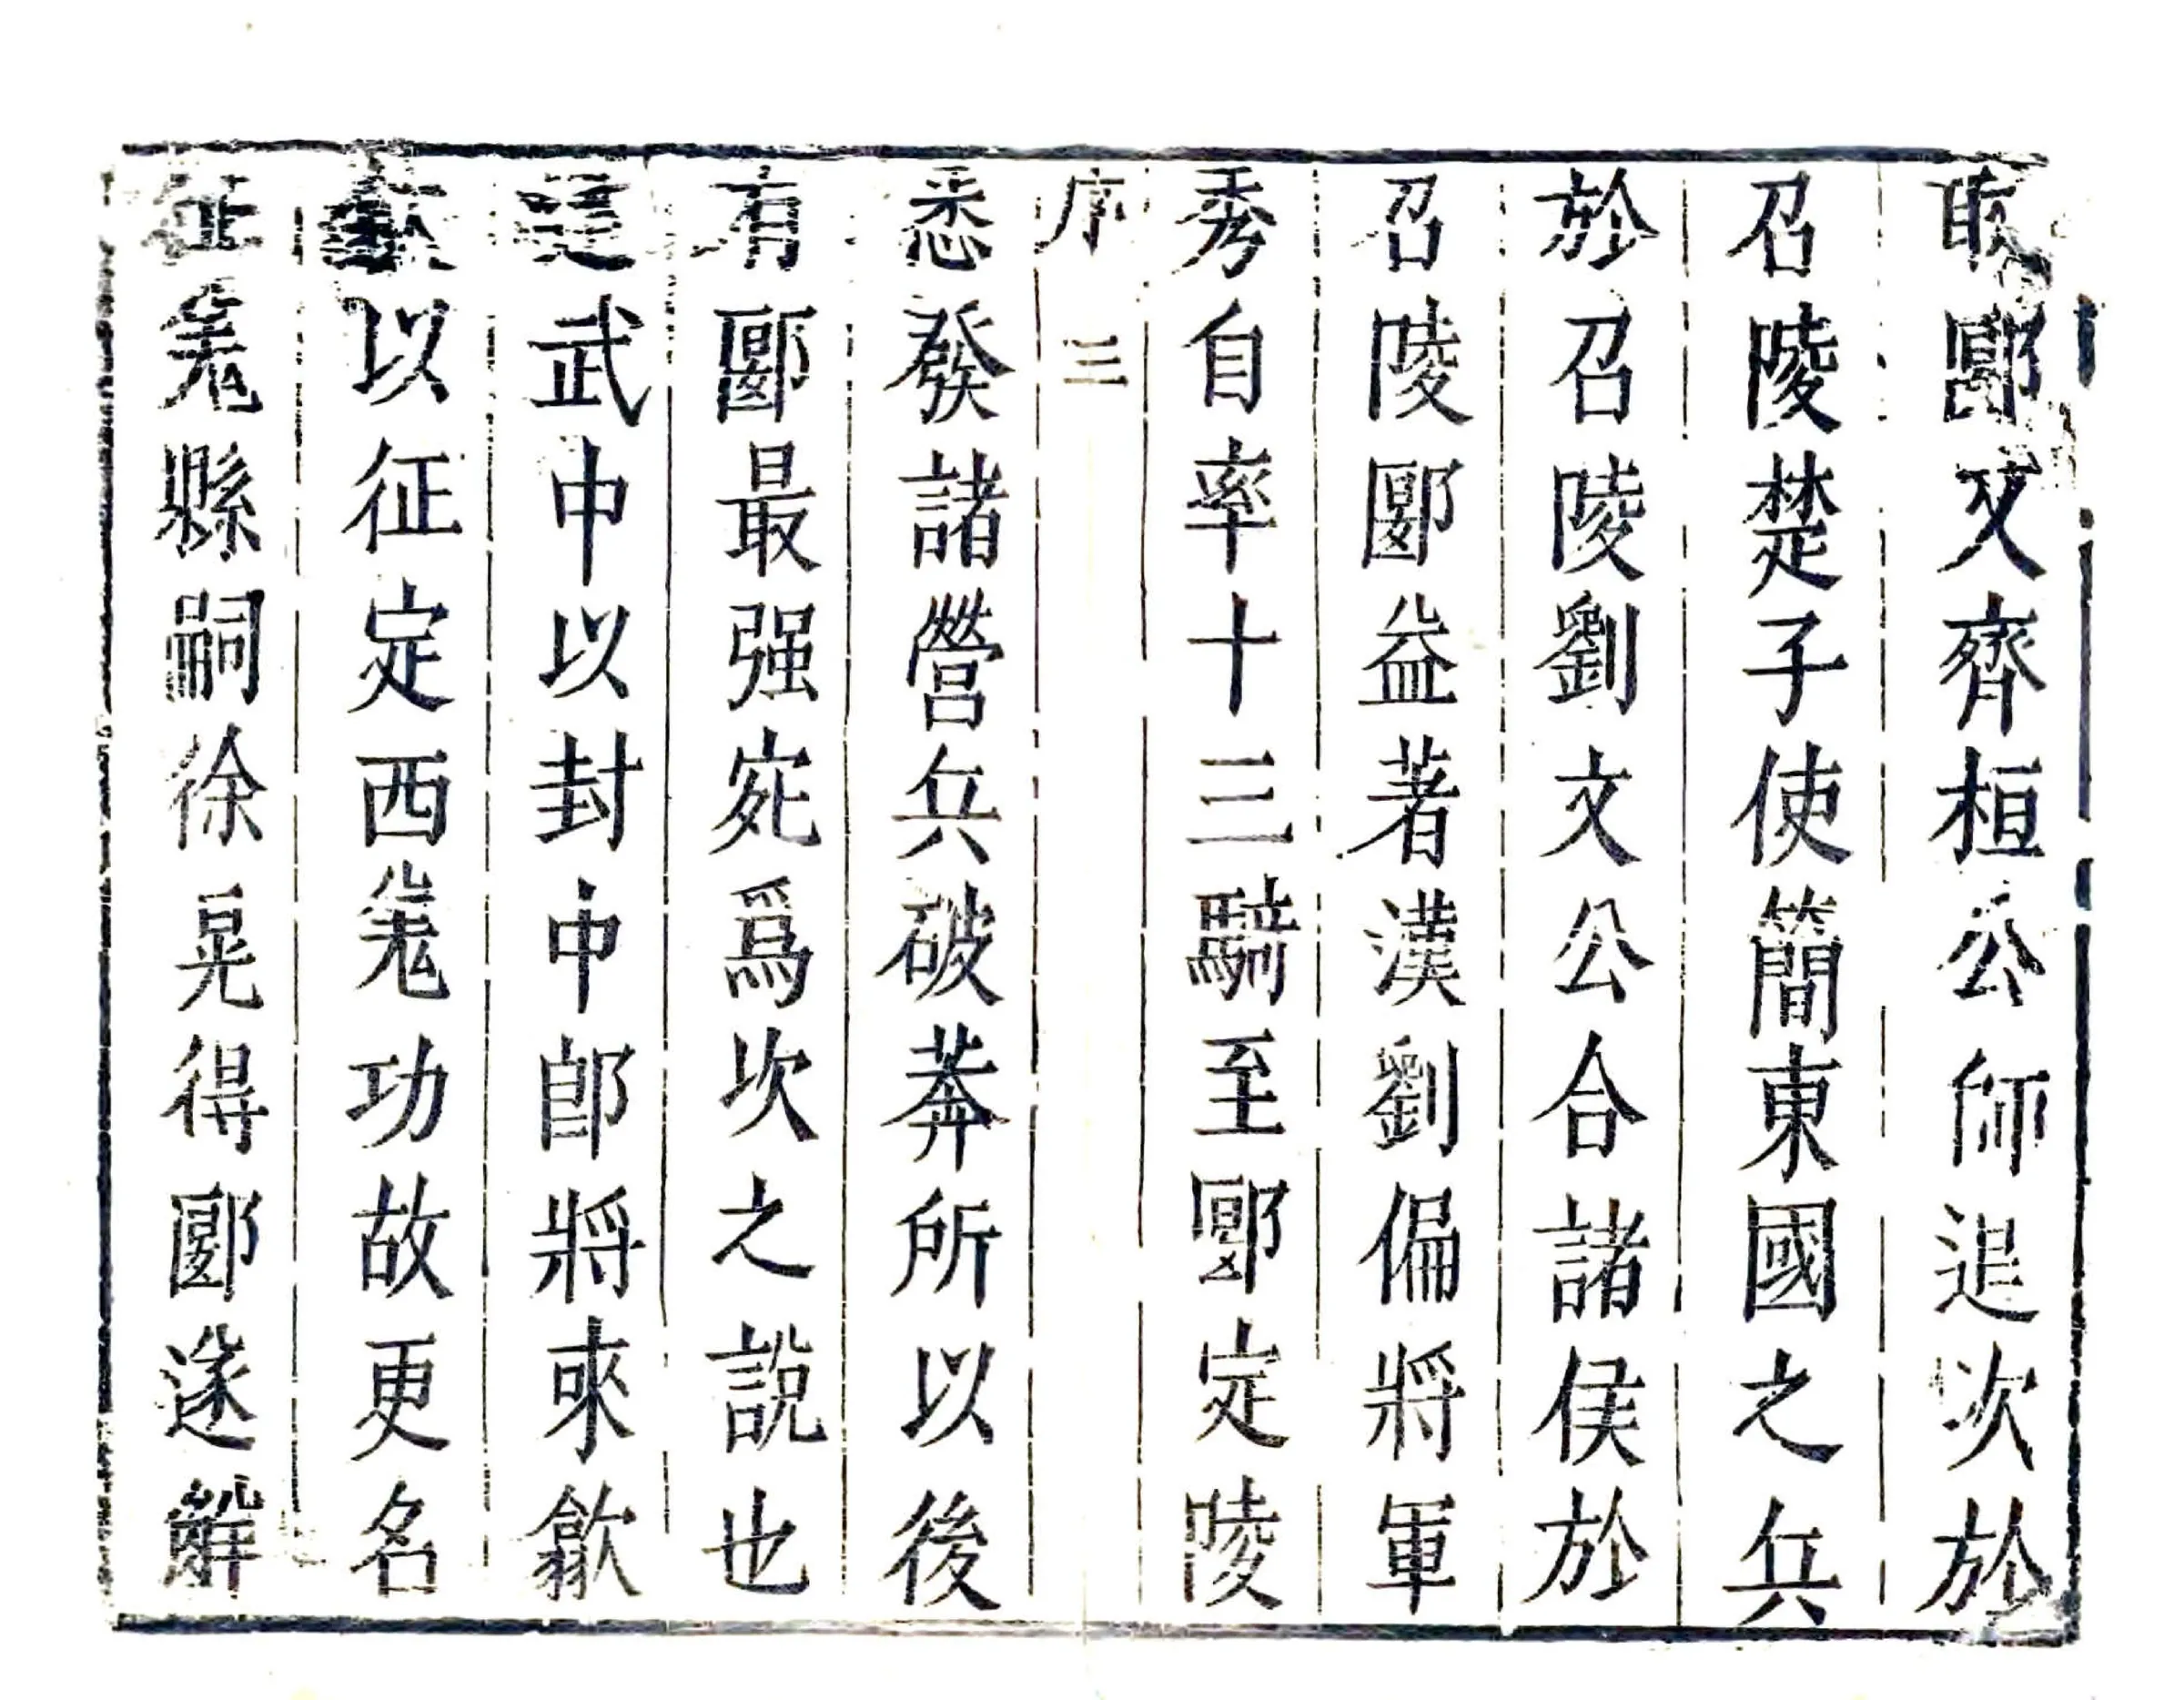 取郾又齊桓公師退次於
召陵楚子使簡東國之兵
於召陵劉文公合諸侯於
召陵郾益著漢劉偏將軍
秀自率十三騎至郾定陵
序 三
悉發諸營兵破莽所以後
有郾最强宛爲坎之說也
建武中以封中郎將來歙
歙以征定西羌功故更名
征羌縣嗣徐晃得郾遂解